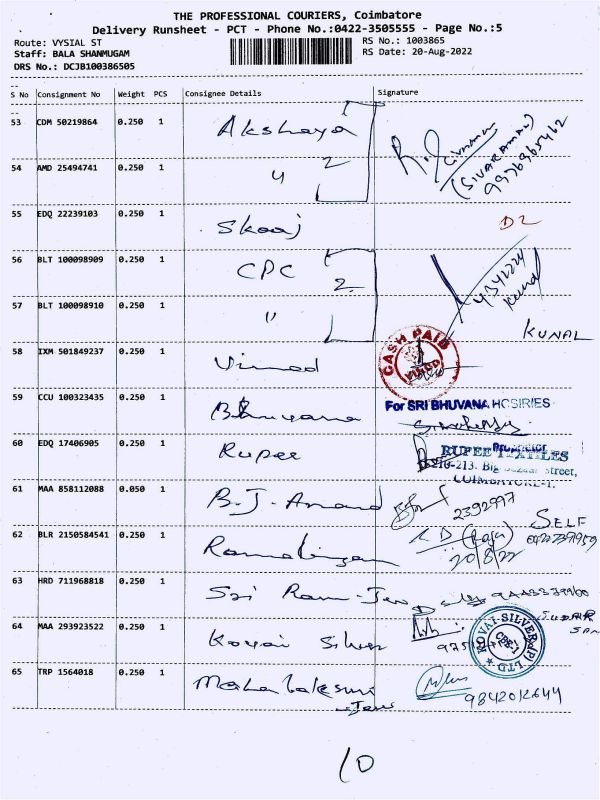 THE PROFESSIONAL COURIERS, Coimbatore
Delivery Runsheet - PCT - Phone No.:0422-3505555 - Page No.:5
Route: VYSIAL ST RS No.: 1003865
Staff: BALA SHANMUGAM RS Date: 20-Aug-2022
DRS No.: DCJB100386505
S No Consignment No Weight PCS Consignee Details Signature
53 CDM 50219864 0.250 1 Akshaya
(SIVARAMAN)
54 AMD 25494741 0.250 1 " 2
55 EDQ 22239103 0.250 1 D2
56 BLT 100098909 0.250 1 CPC 2
57 BLT 100098910 0.250 1 " KUNAL
58 IXM 501849237 0.250 1 Vinod CASH PAID
59 CCU 100323435 0.250 1 Bhuvana For SRI BHUVANA HOSIERIES
Proprietor
60 EDQ 17406905 0.250 1 Rupee RUPEE TEXTILES
210-213. Big Bazaar Street,
COIMBATORE-1.
61 MAA 858112088 0.050 1 B.J. Anand 2392997
SELF
62 BLR 2150584541 0.250 1 Ramalingam (Raja)
20/8/22
63 HRD 711968818 0.250 1 Sri Ram
64 MAA 293923522 0.250 1 Kovai Silver KOVAI SILVER (P) LTD
65 TRP 1564018 0.250 1 Mahalakshmi
10